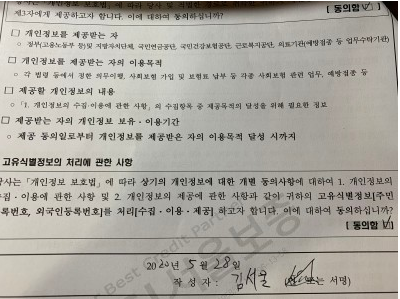 제3자에게 제공하고자 합니다. 이에 대하여 동의하십니까?
[ 동의함 ☑ ]
□ 개인정보를 제공받는 자
○ 정부(고용노동부 등)및 지방자치단체, 국민연금공단, 국민건강보험공단, 근로복지공단, 의료기관(예방접종 등 업무수탁기관)
□ 개인정보를 제공받는 자의 이용목적
○ 각 법령 등에서 정한 의무이행, 사회보험 가입 및 보험료 납부 등 각종 사회보험 관련 업무, 예방접종 등
□ 제공할 개인정보의 내용
○ 「1. 개인정보의 수집·이용에 관한 사항」의 수집항목 중 제공목적의 달성을 위해 필요한 정보
□ 제공받는 자의 개인정보 보유·이용기간
○ 제공 동의일로부터 개인정보를 제공받은 자의 이용목적 달성 시까지
고유식별정보의 처리에 관한 사항
당사는 「개인정보 보호법」에 따라 상기의 개인정보에 대한 개별 동의사항에 대하여 1. 개인정보의
수집·이용에 관한 사항 및 2. 개인정보의 제공에 관한 사항과 같이 귀하의 고유식별정보[주민
등록번호, 외국인등록번호]를 처리[수집·이용·제공] 하고자 합니다. 이에 대하여 동의하십니까?
[ 동의함 ☑
2020년 5월 28일
작 성 자 : 김서울 서명)
Best Credit Partner